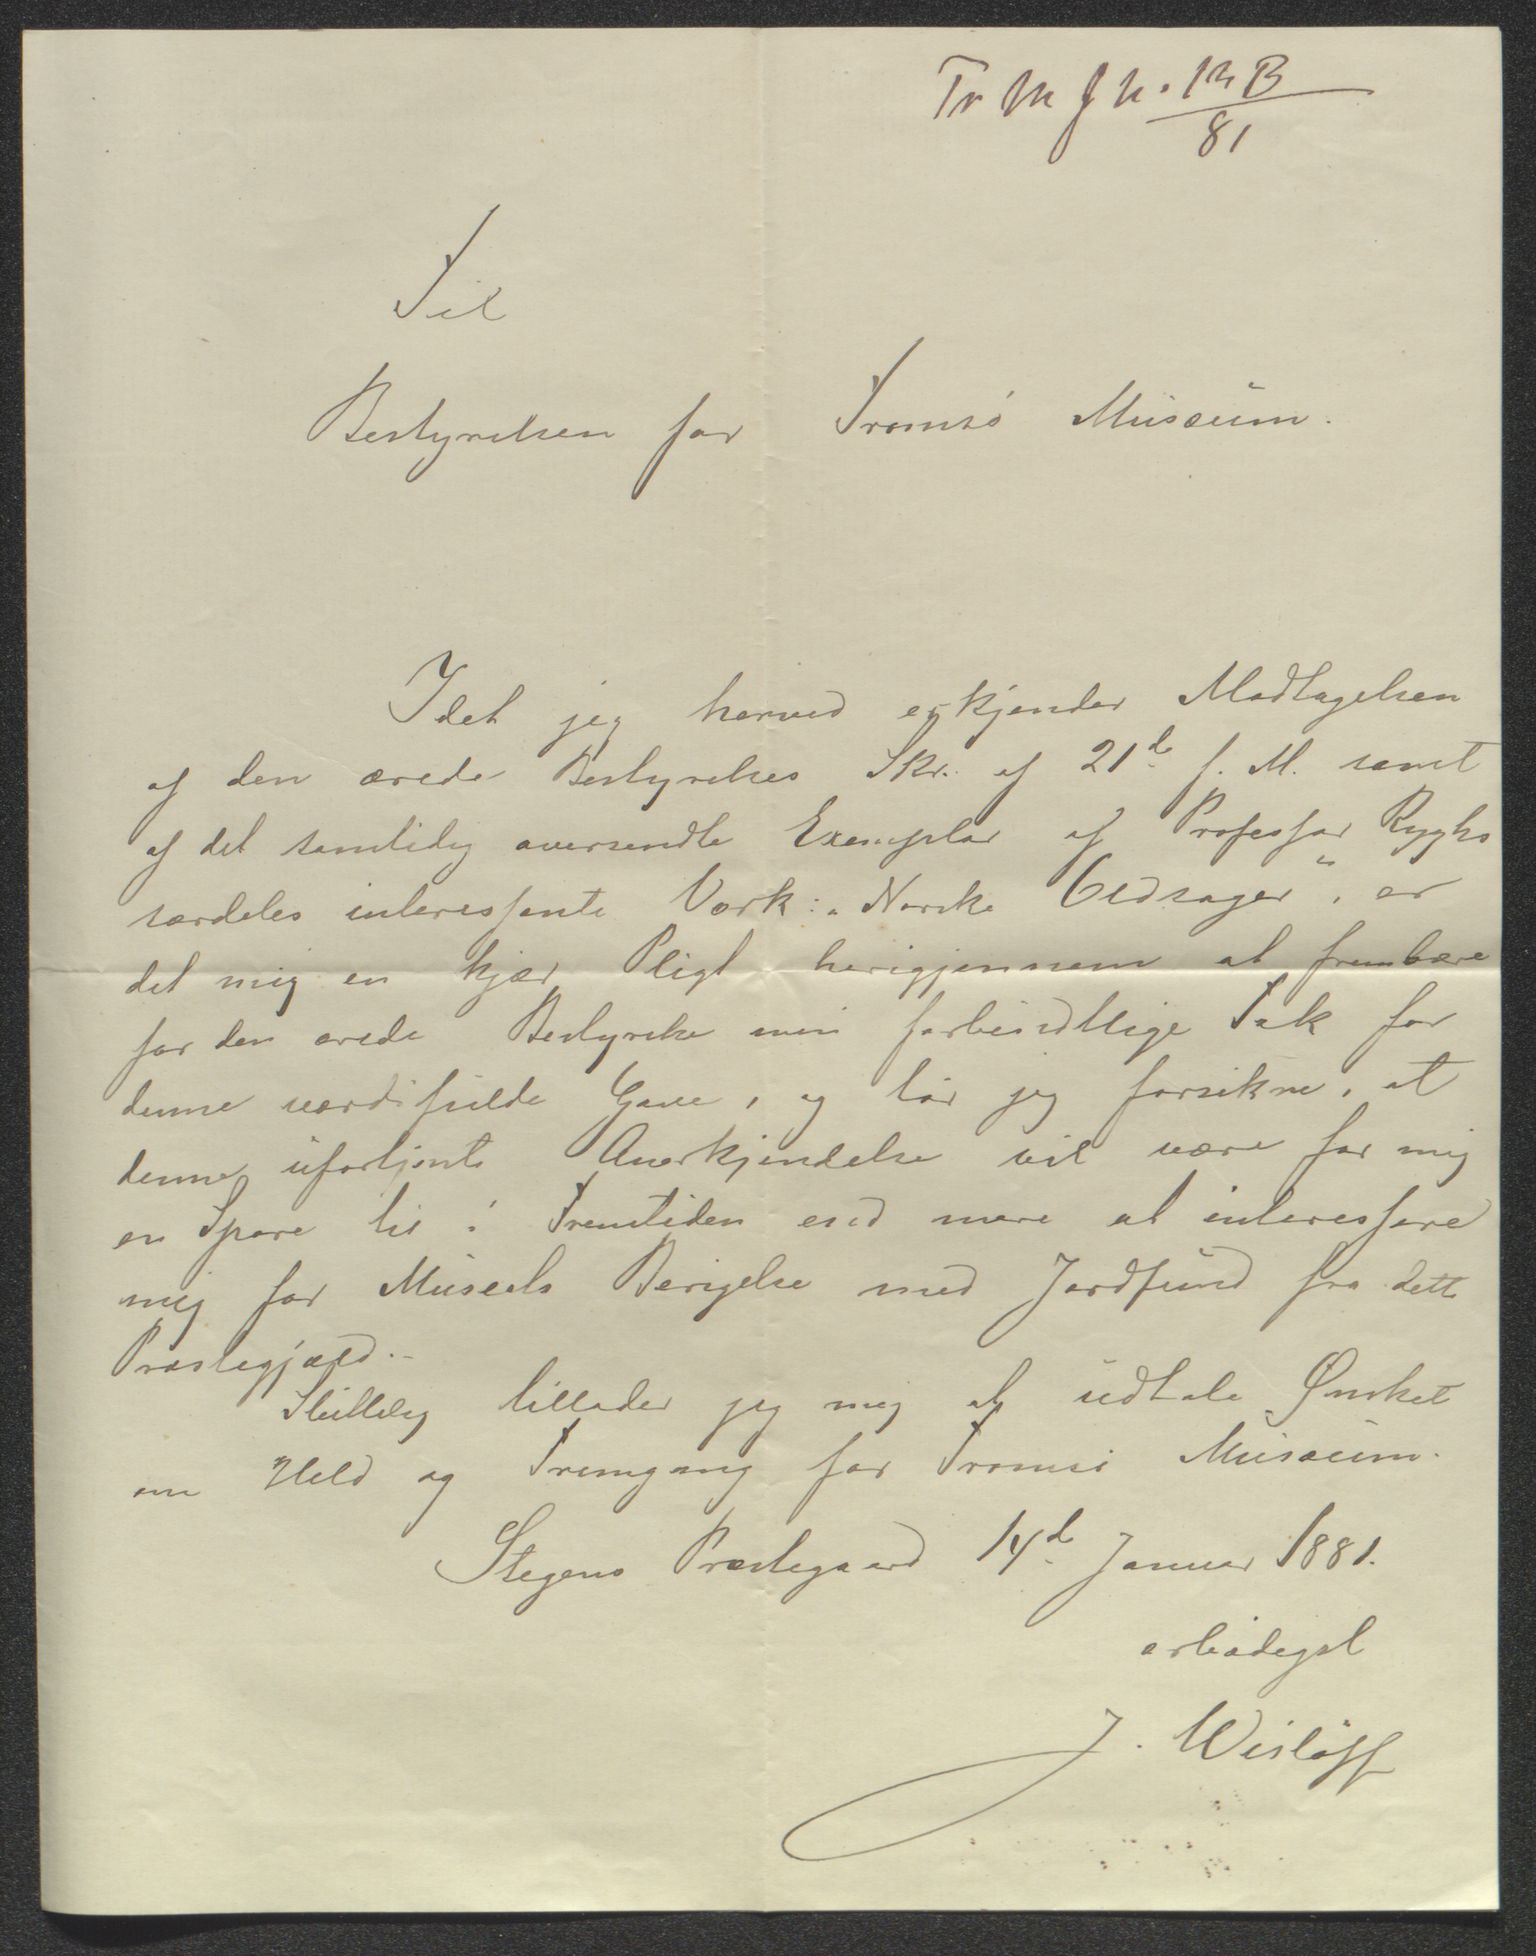 Tr M J N. 12 B
81
Til
Bestyrelsen for Tromsø Museum.
Idet jeg herved erkjender Modtagelsen
af den ærede Bestyrelses Skr. af 21de f. M. samt
af det samtidig oversendte Exemplar af Professor Ryghs
særdeles interessante Værk: „Norske Oldsager“, er
det mig en kjær Pligt herigjennem at frembære
for den ærede Bestyrelse min forbindtlige Tak for
denne værdifulde Gave, og tør jeg forsikre, at
denne ufortjente Anerkjendelse vil være for mig
en Spore til i Fremtiden end mere at interessere
mig for Museets Berigelse med Jordfund fra dette
Præstegjæld.-
Sluttelig tillader jeg mig at udtale Ønsket
om Held og Fremgang for Tromsø Museum.
Stegens Præstegaard 14de Januar 1881.
ærbødigst
J. Wisløff